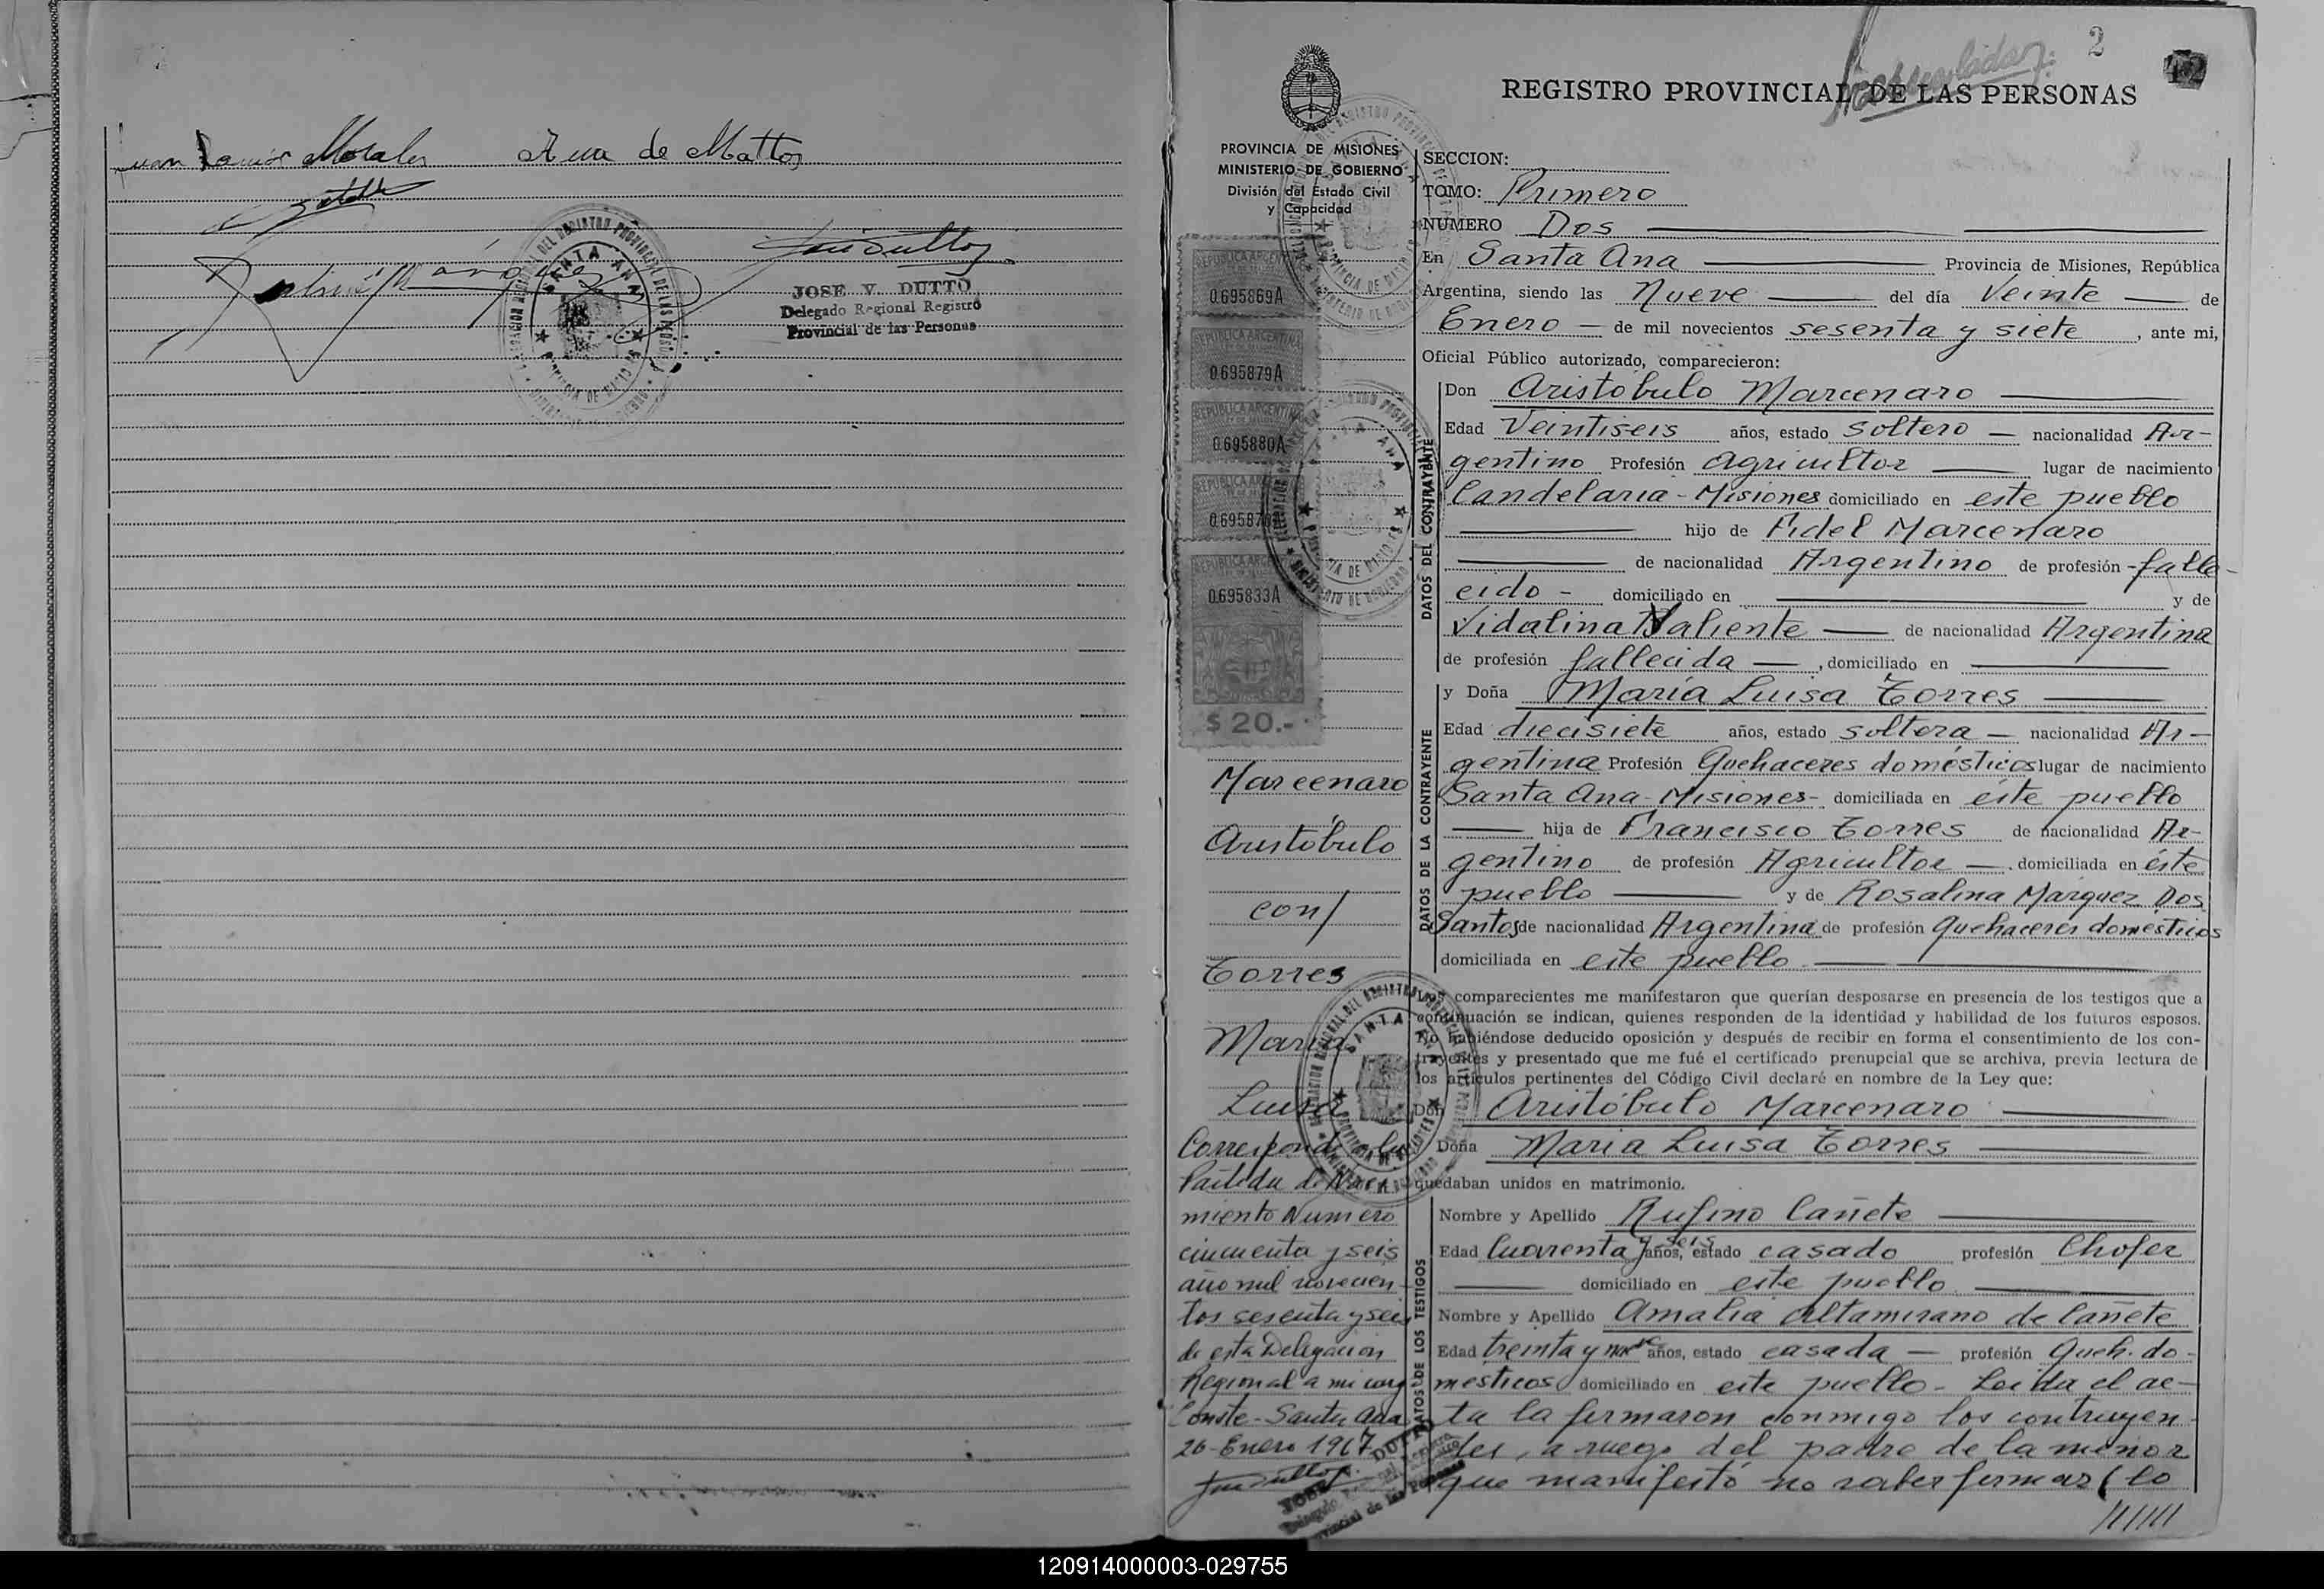 Juan Ramón Morales Ana de Mattos
JOSE V. DUTTO
Delegado Regional Registro
Provincial de las Personas
SANTA ANA
2
REGISTRO PROVINCIAL DE LAS PERSONAS
PROVINCIA DE MISIONES
MINISTERIO DE GOBIERNO
División del Estado Civil
y Capacidad
REPUBLICA ARGENTINA
0.695869A
REPUBLICA ARGENTINA
0.695879A
REPUBLICA ARGENTINA
0.695880A
REPUBLICA ARGENTINA
0.69587
REPUBLICA ARGENTINA
0.695833A
$ 20.-
Marcenaro
Aristóbulo
con/
Torres
María
Luisa
Corresponde la
Partida de Naci
miento Número
cincuenta y seis
año mil novecien-
tos sesenta y seis
de esta Delegación
Regional a mi cargo
Conste - Santa Ana
26-Enero 1967
SECCION:
TOMO: Primero
NUMERO Dos
En Santa Ana Provincia de Misiones, República
Argentina, siendo las Nueve del día Veinte de
Enero de mil novecientos sesenta y siete, ante mi,
Oficial Público autorizado, comparecieron:
DATOS DEL CONTRAYENTE
Don Aristóbulo Marcenaro
Edad Veintiseis años, estado soltero nacionalidad Ar-
gentino Profesión Agricultor lugar de nacimiento
Candelaria - Misiones domiciliado en este pueblo
hijo de Fidel Marcenaro
de nacionalidad Argentino de profesión - falle-
cido - domiciliado en y de
Vidalina Valiente de nacionalidad Argentina
de profesión fallecida, domiciliado en
DATOS DE LA CONTRAYENTE
y Doña María Luisa Torres
Edad diecisiete años, estado soltera nacionalidad Ar-
gentina Profesión Quehaceres domésticos lugar de nacimiento
Santa Ana - Misiones - domiciliada en éste pueblo
hija de Francisco Torres de nacionalidad Ar-
gentino de profesión Agricultor. domiciliada en éste
pueblo y de Rosalina Marquez Dos
Santos de nacionalidad Argentina de profesión Quehaceres domésticos
domiciliada en este pueblo
Los comparecientes me manifestaron que querían desposarse en presencia de los testigos que a
continuación se indican, quienes responden de la identidad y habilidad de los futuros esposos.
No habiéndose deducido oposición y después de recibir en forma el consentimiento de los con-
trayentes y presentado que me fué el certificado prenupcial que se archiva, previa lectura de
los artículos pertinentes del Código Civil declaré en nombre de la Ley que:
Don Aristóbulo Marcenaro
Doña María Luisa Torres
quedaban unidos en matrimonio.
DATOS DE LOS TESTIGOS
Nombre y Apellido Rufino Cañete
Edad Cuarenta y seis años, estado casado profesión Chofer
domiciliado en este pueblo
Nombre y Apellido Amalia Altamirano de Cañete
Edad treinta y nueve años, estado casada profesión Queh. do-
mesticos domiciliado en este pueblo - Leída el ac-
ta la firmaron conmigo los contrayen
tes, a ruego del padre de la menor
que manifestó no saber firmar (lo
//////
120914000003-029755